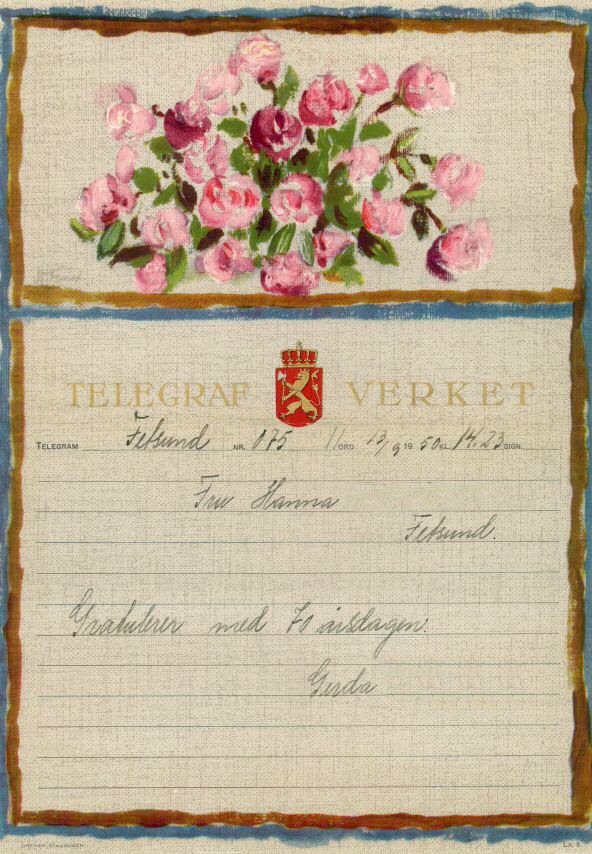 TELEGRAF VERKET
TELEGRAM Fetsund NR. 075 11 ORD 13/9 19 50 KL. 14.23 SIGN.
Fru Hanna
Fetsund.
Gratulerer med 70 årsdagen.
Gerda
DREYER, STAVANGER Lx. 6